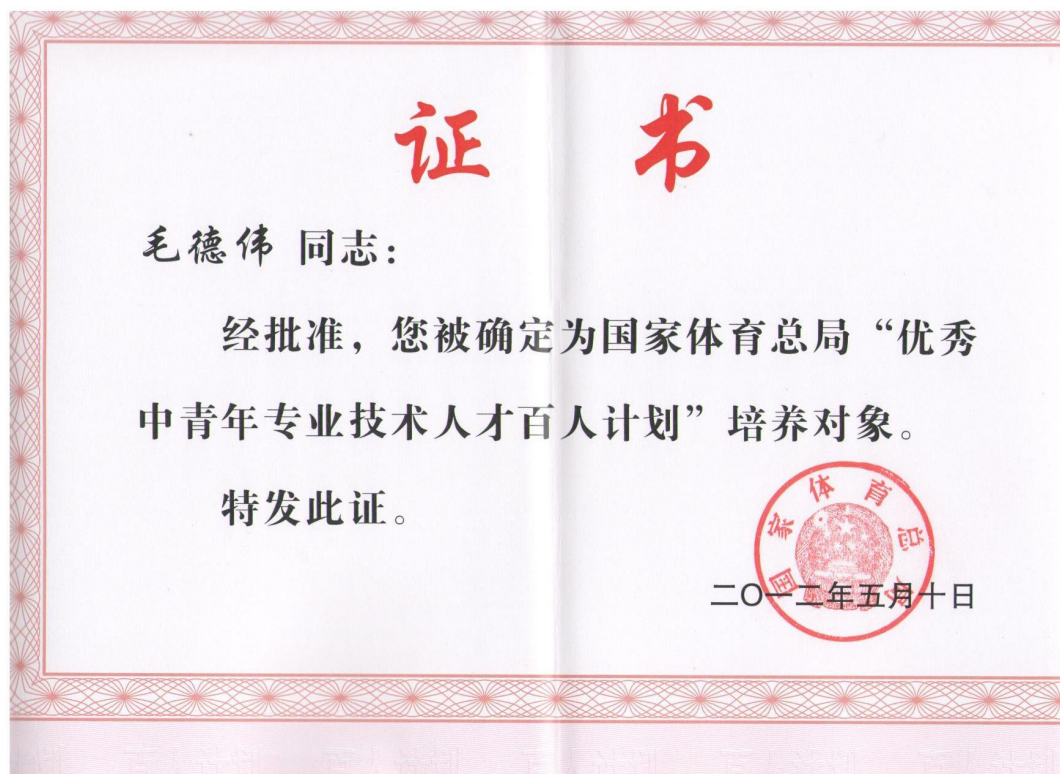 证 书
毛德伟 同志：
经批准，您被确定为国家体育总局“优秀
中青年专业技术人才百人计划”培养对象。
特发此证。
国家体育总局
二〇一二年五月十日